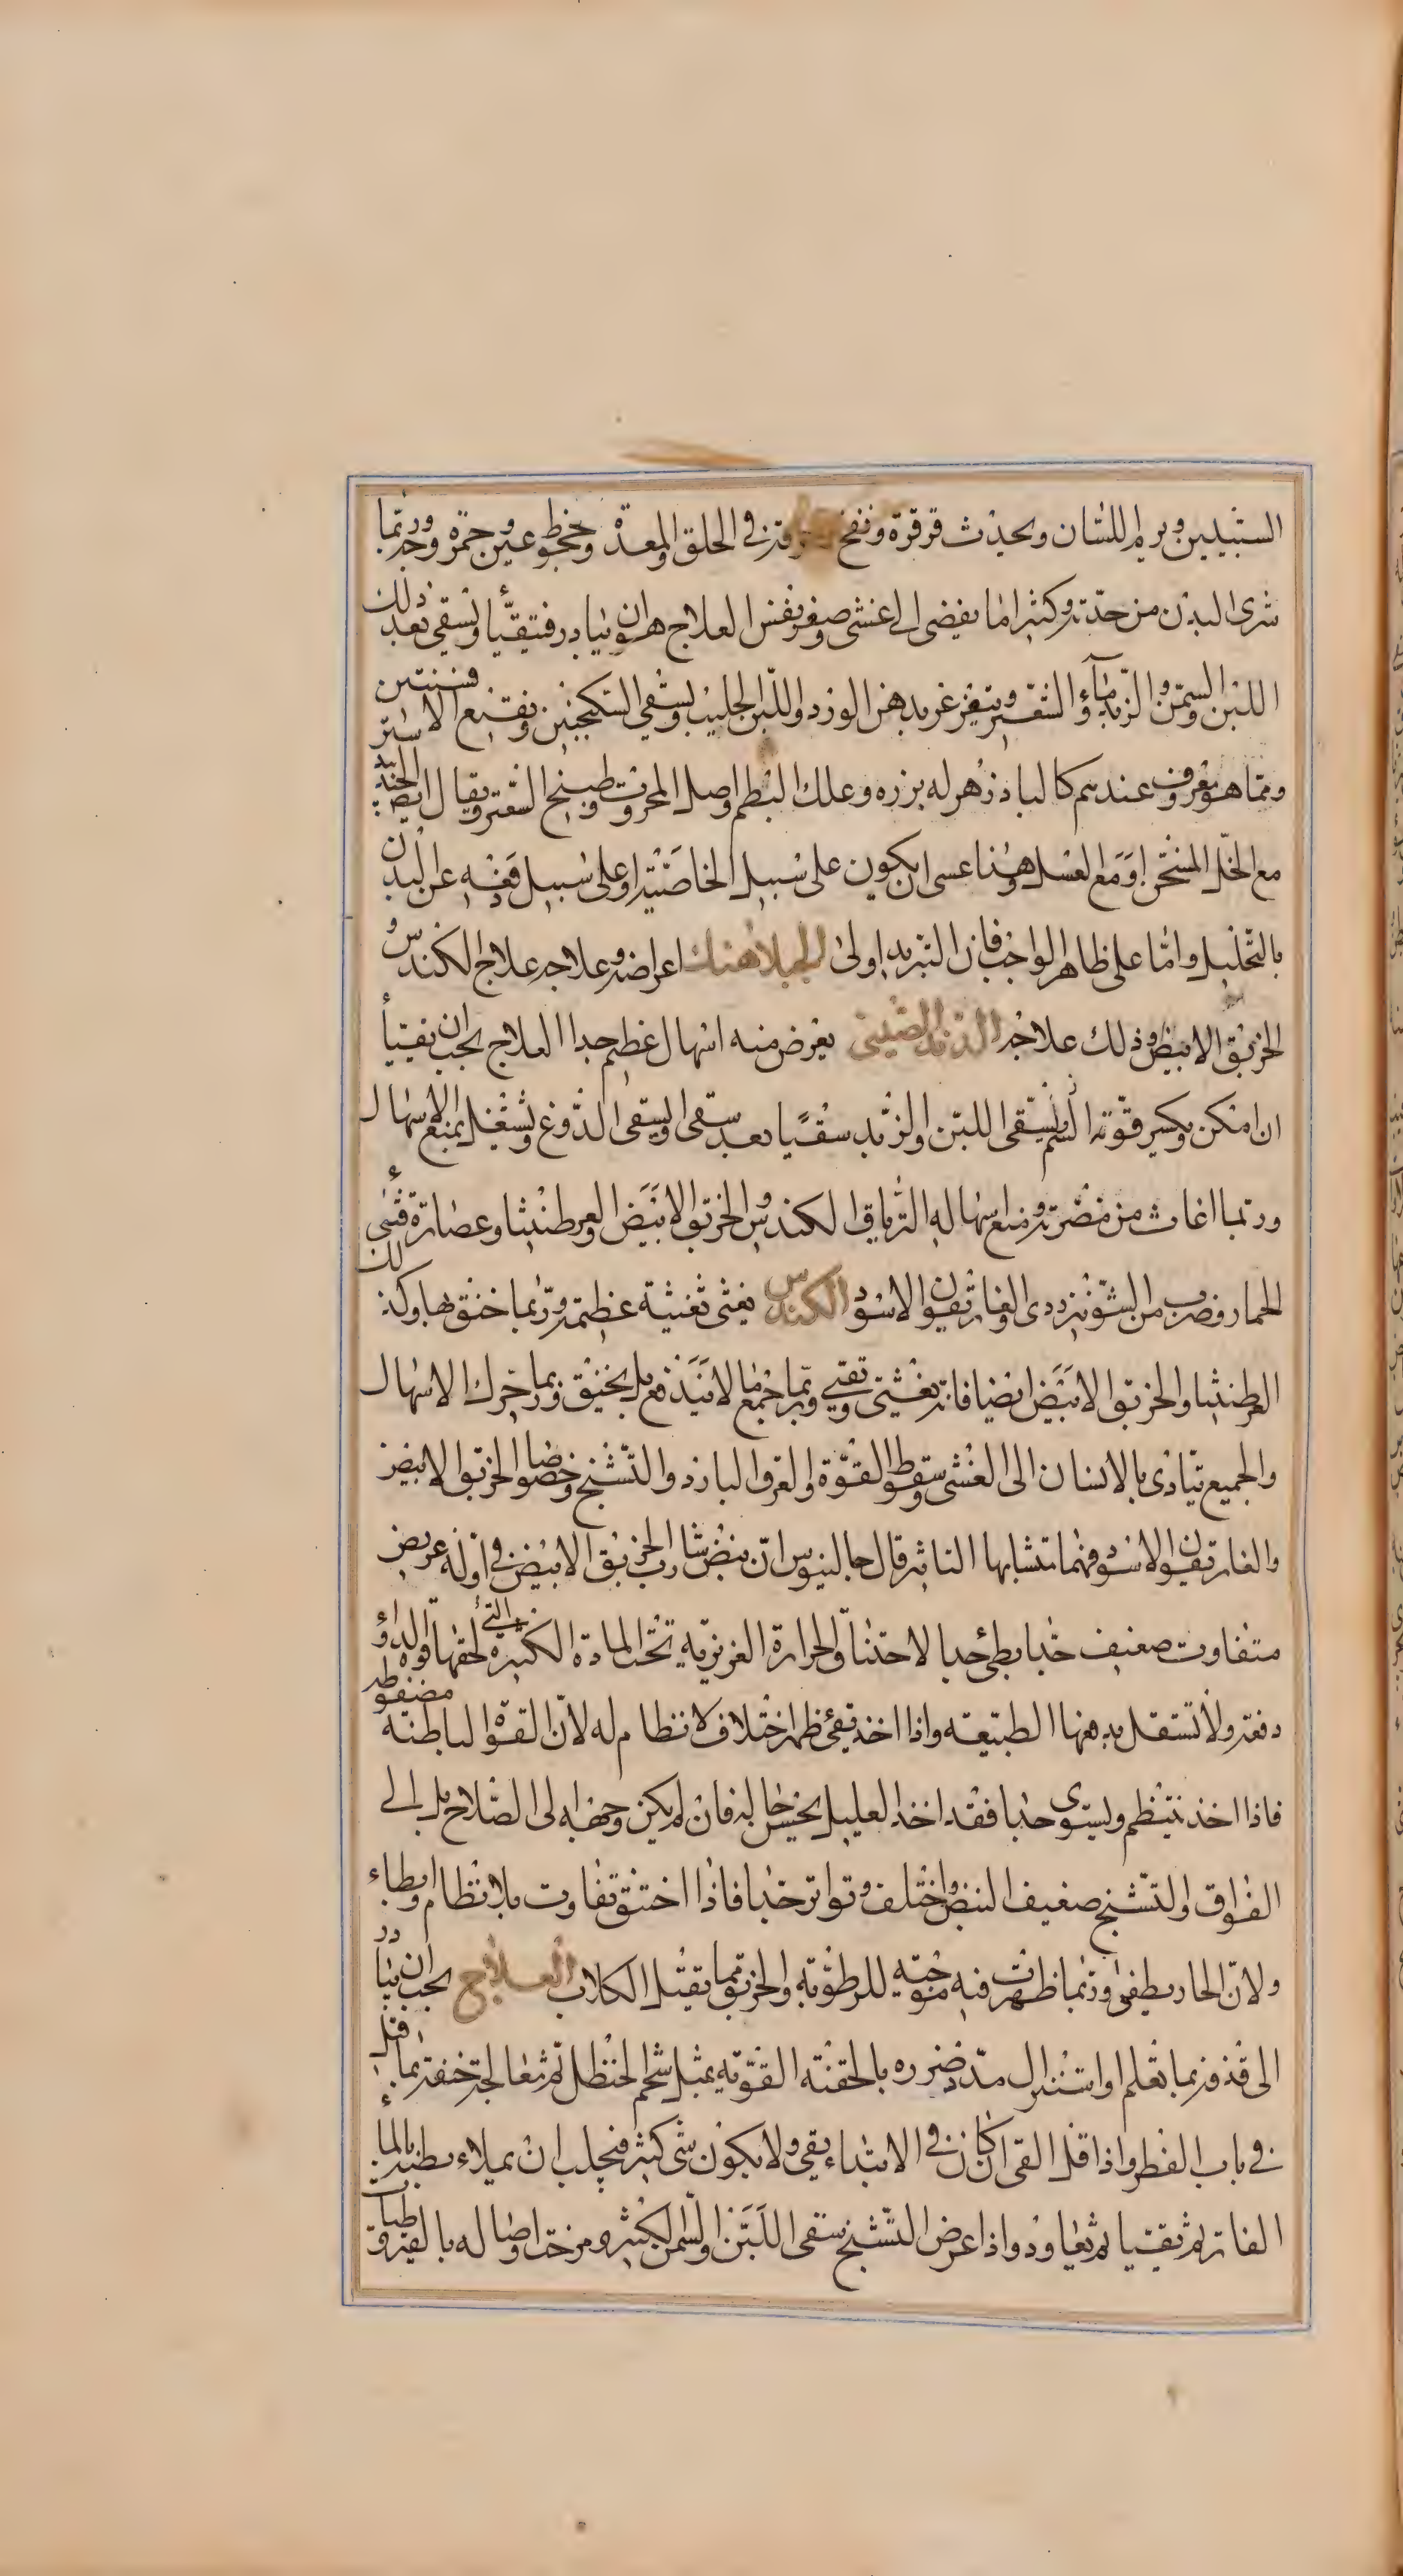 السبيلين ويرم اللسان ويحدث قرقرة ونفخ وحرقة في الحلق والمعدة وجحوظ عين وحمرة وجه وربما
شرى البدن من حدته وكثيرا ما يفضى الى غشى وصغر نفس العلاج هو ان يبادر فيتقيأ ويسقى بعد ذلك
اللبن والسمن والزبد وماء الشعير ويتغرغر بدهن الورد واللبن الحليب ويسقى السكنجبين ونقيع الافسنتين
ومما هو معروف عندهم كالباذزهر له بزره وعلك البطم واصل المحروث وطبيخ السعتر ويقال ايضا الجند بيدستر
مع الخل المسخن او مع العسل وهذا عسى ان يكون على سبيل الخاصية او على سبيل دفعه عن البدن
بالتحليل واما على ظاهر الواجب فان التبريد اولى الجبلاهنك اعراضه وعلاجه علاج الكندس و
الخربق الابيض وذلك علاجه الدند الصينى يعرض منه اسهال عظيم جدا العلاج يجب ان يتقيأ
ان امكن ويكسر قوته السم ويسقى اللبن والزبد سقيا بعد سقى ويسقى الدوغ ويشتغل بمنع الاسهال
وربما اغاث من مضرته ومنع اسهاله الترياق الكندس والخربق الابيض والعرطنيثا وعصارة قثاء
الحمار وضرب من الشونيز ردى والغاريقون الاسود الكندس يغثى تغثية عظيمة وربما خنق بها وكذلك
العرطنيثا والخربق الابيض ايضا فانه يغثى ويقيى وربما جمع ما لا يندفع بل يخنق وربما حرك الاسهال
والجميع يتادى بالانسان الى الغشى وسقوط القوة والعرق البارد والتشنج وخصوصا الخربق الابيض
والغاريقون الاسود فهما متشابها التاثير قال جالينوس ان نبض شارب الخربق الابيض فى اوله عريض
متفاوت ضعيف جدا بطئ جدا لاحتناق الحرارة الغريزية تحت المادة الكثيرة التى لحقها قوة الدواء
دفعة ولا تستقل بدفعها الطبيعة واذا اخذ يقئ ظهر اختلاف لا نظام له لان القوة الباطنة مضغوطة
فاذا اخذ ينتظم ويستوى جدا فقد اخذ العليل يحسن حاله فان لم يكن وجهه له الى الصلاح بل الى
الفواق والتشنج ضعيف النبض واختلف وتواتر جدا فاذا اختنق تفاوت بلا نظام وابطاء
ولان الحار يطفئ وربما ظهرت فيه موجية للرطوبة والخربق مما يقتل الكلاب العلاج يجب ان يبادر
الى قذفه بما تعلم او استنزال مدد ضرره بالحقنة القوية بمثل شحم الحنظل ثم تعالج خنقه بما قيل
فى باب الفطر واذا قل القى ان كان فى الابتداء يقى ولا يكون شى كثير فيجب ان يملاء بطنه بالماء
الفاتر ثم يتقيا ثم يعاود واذا عرض التشنج سقى اللبن والسمن الكثير ومرخ اوصاله بالقيروطيات